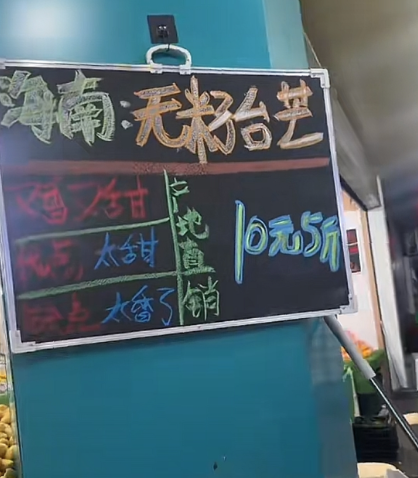 海南:无籽台芒
又香又甜
优点,太甜
缺点太香了
产地直销
10元5斤